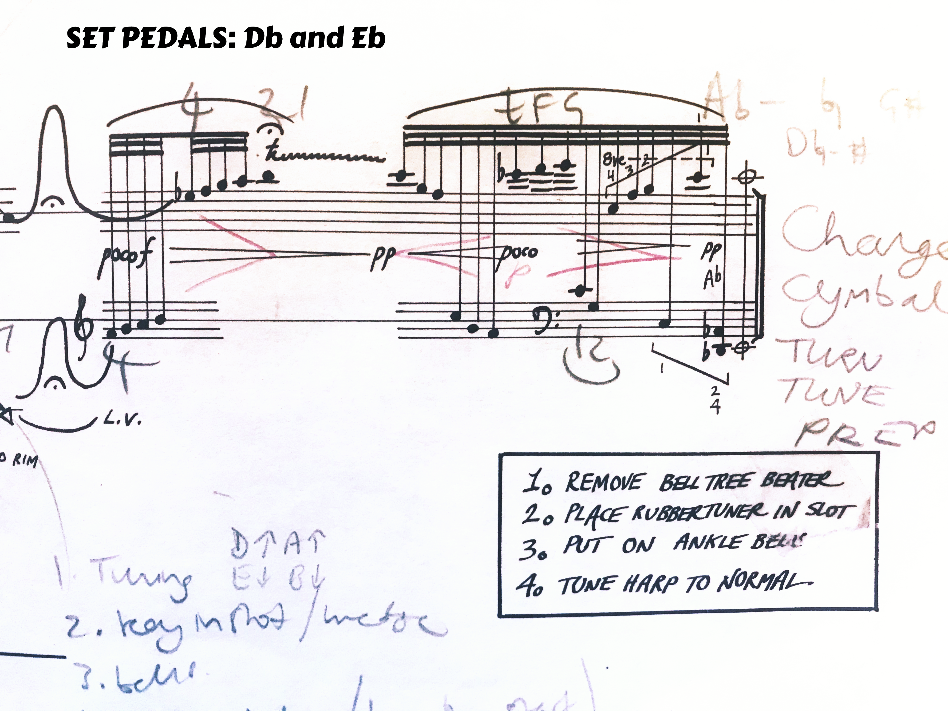 SET PEDALS: Db and Eb
4 2 1
E F G
Ab
8ve
4 3 2
1
poco f
pp
poco
pp
Ab
p
Change
Cymbal
TURN
TUNE
4
12
1
2
4
L.V.
RIM
1. REMOVE BELL TREE BEATER
2. PLACE RUBBERTUNER IN SLOT
3. PUT ON ANKLE BELLS
4. TUNE HARP TO NORMAL.
D↑A↑
1. Tuning E↓ B↓
2. key in
3. bells